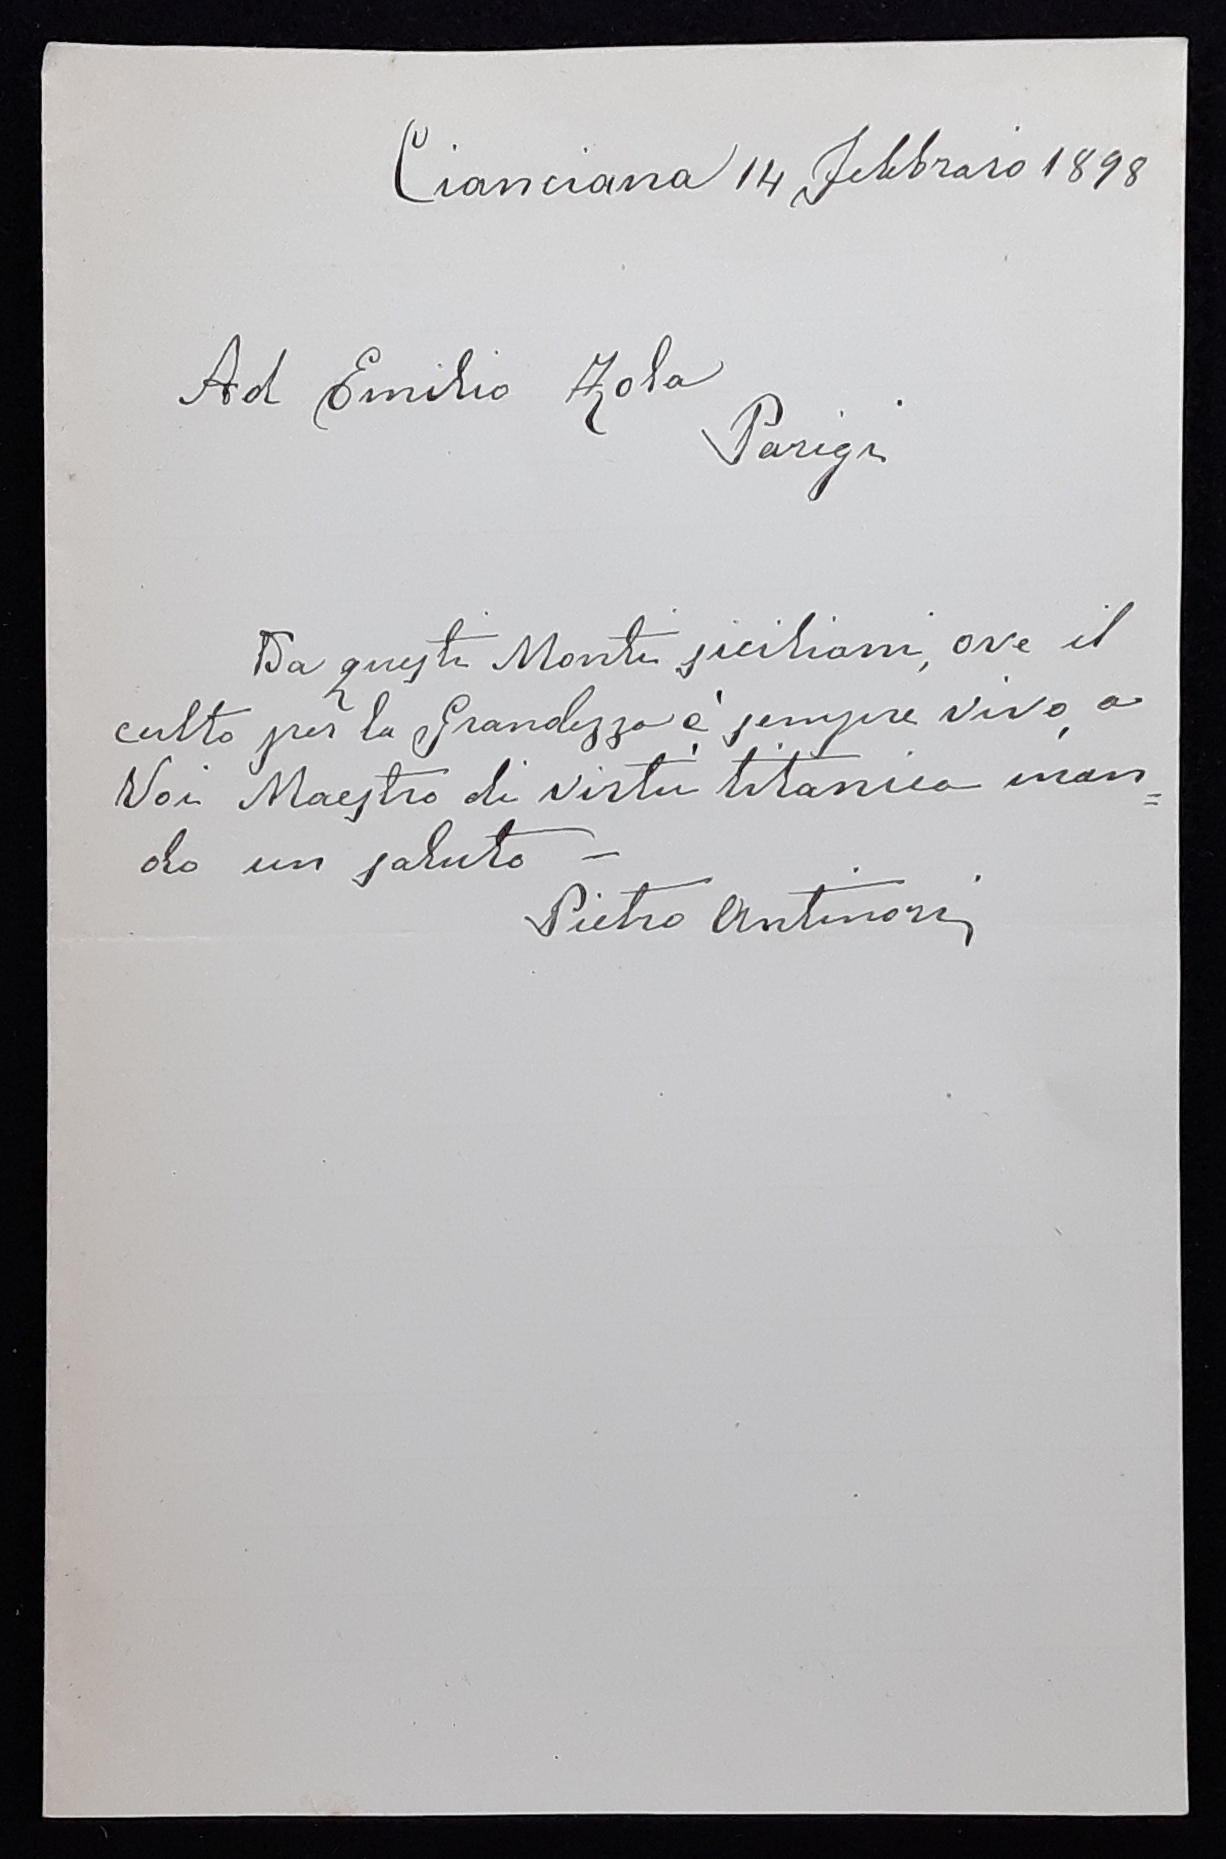 Cianciana 14 Febbraio 1898
Ad Emilio Zola
Parigi
Da questi Monti siciliani, ove il
culto per la Grandezza è sempre vivo, a
Voi Maestro di virtù titanica man=
do un saluto –
Pietro Antinori